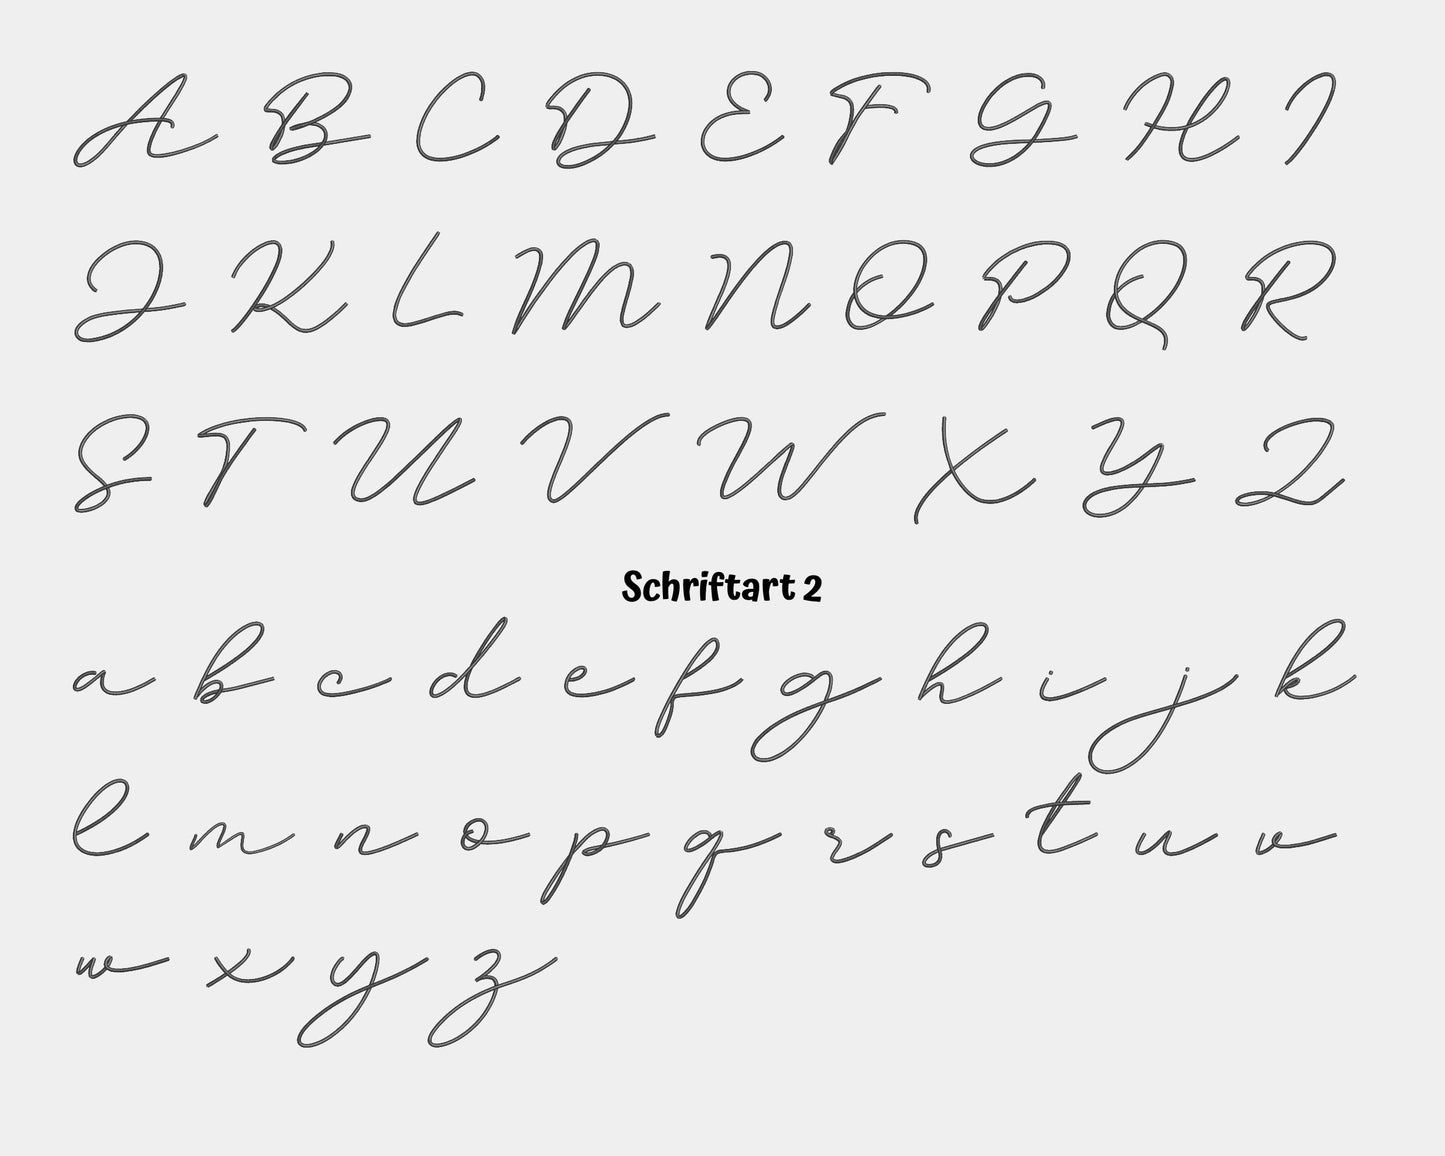 A B C D E F G H I
J K L M N O P Q R
S T U V W X Y Z
Schriftart 2
a b c d e f g h i j k
l m n o p q r s t u v
w x y z